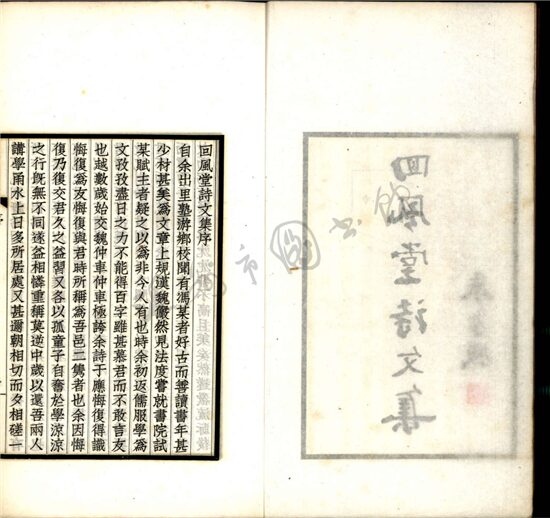 回風堂詩文集
回風堂詩文集序
自余出里塾游鄉校聞有馮某者好古而善讀書年甚
少材甚美爲文章上規漢魏儼然見法度嘗就書院試
某賦主者疑之以爲非今人有也時余初返儒服學爲
文孜孜盡日之力不能得百字雖甚慕君而不敢言友
也越數歲始交魏仲車仲車極誇余詩于應悔復得識
悔復爲友悔復與君時所稱爲吾邑二雋者也余因悔
復乃復交君久之益習又各以孤童子自奮於學涼涼
之行旣無不同遂益相憐重稱莫逆中歲以還吾兩人
講學甬水上日多所居處又甚邇朝相切而夕相磋一